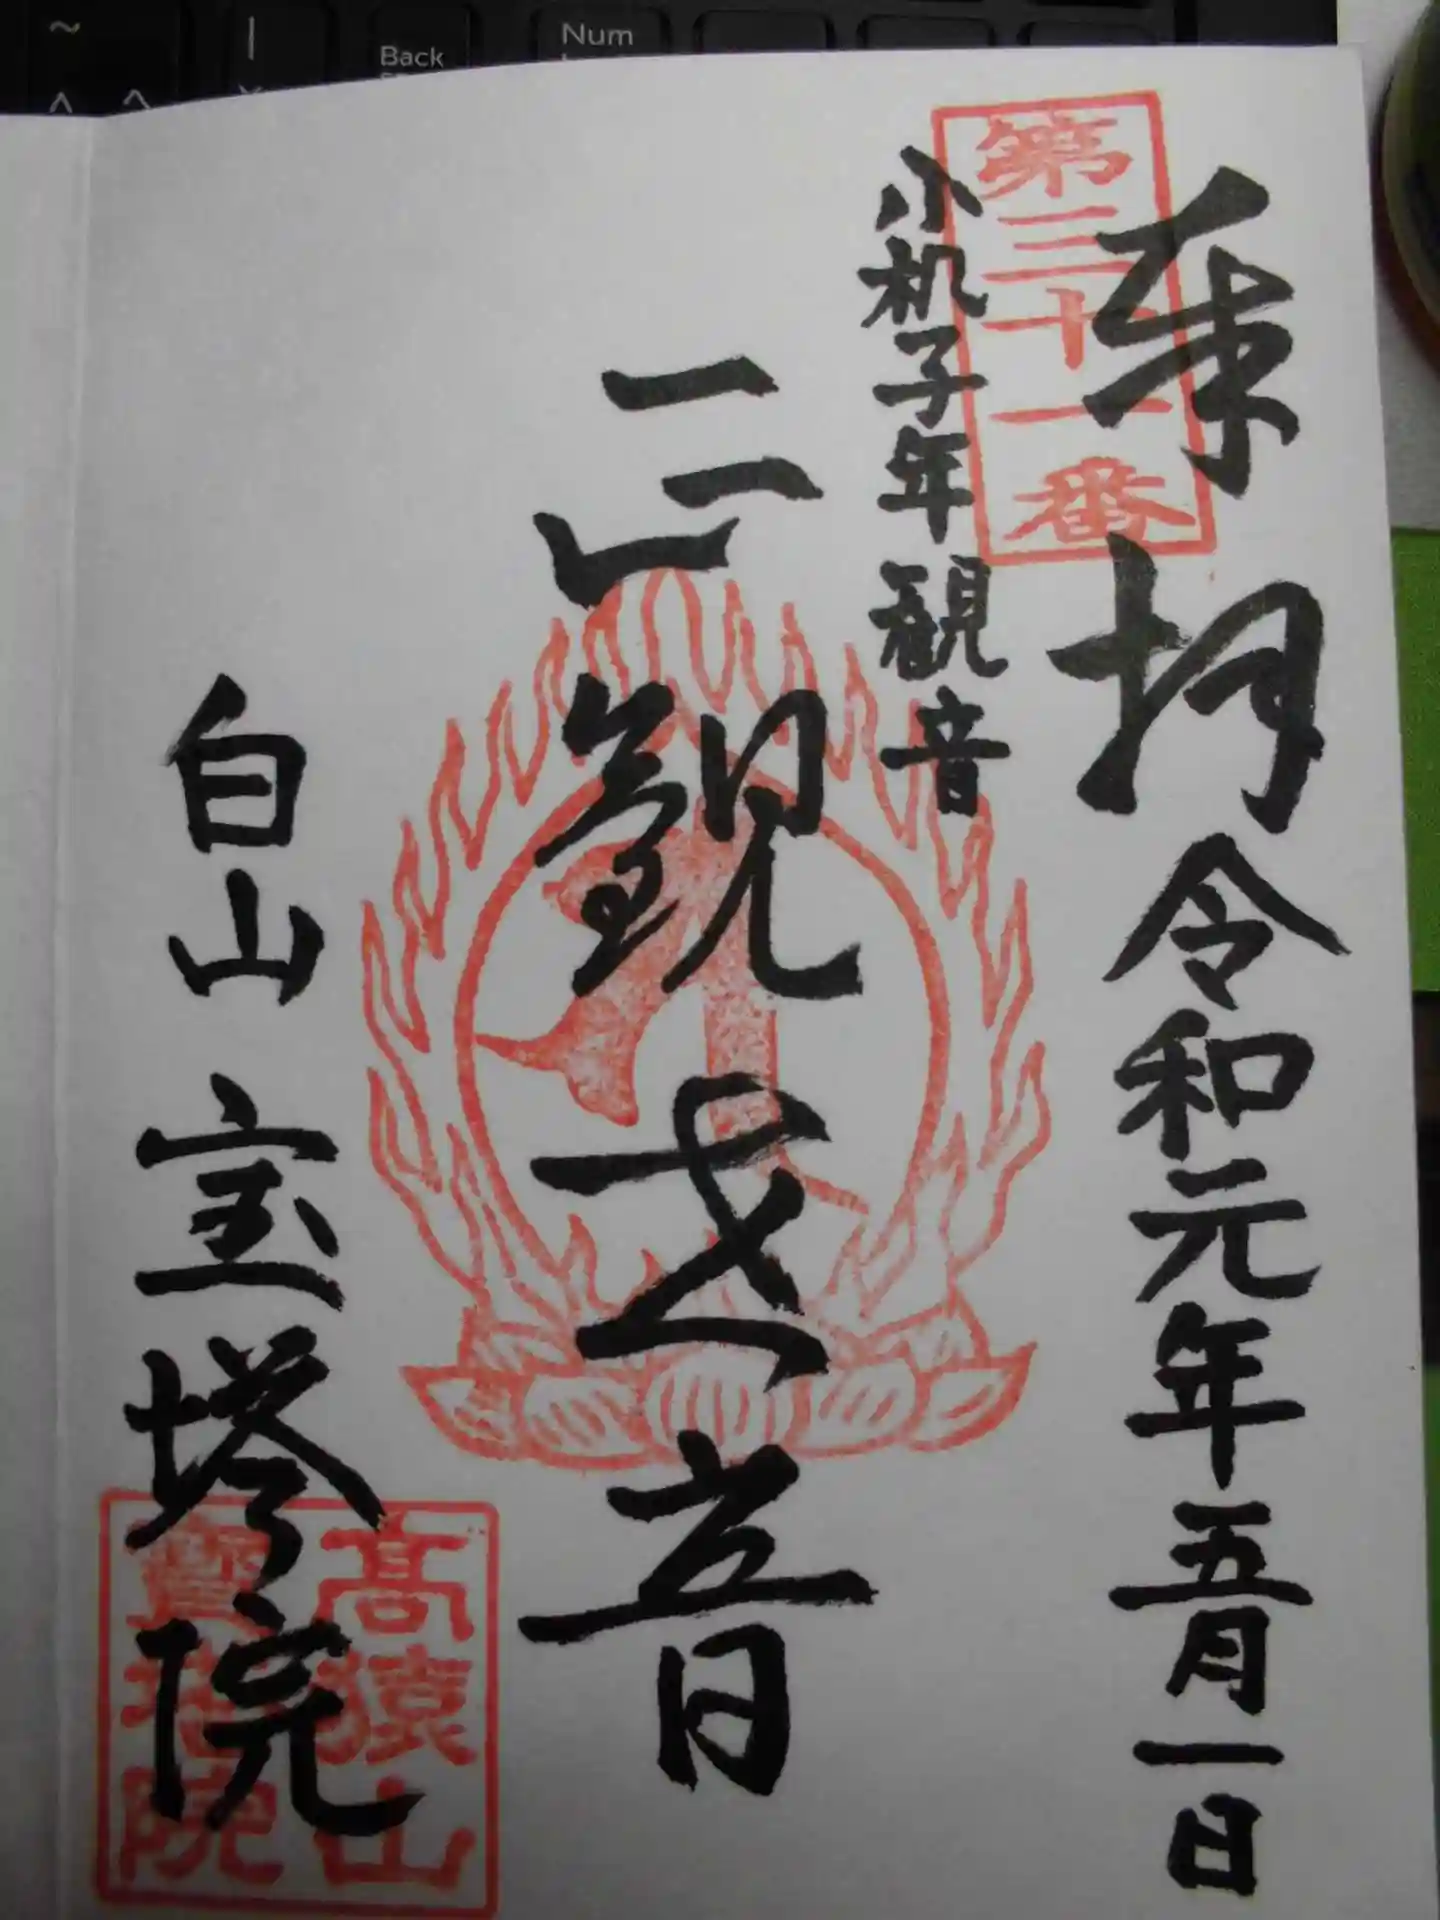 ~
|
Back
Num
^
へ
奉拝 令和元年五月一日
第三十一番
小机子年観音
観世音
白山 宝塔院
髙猿山
寶塔院